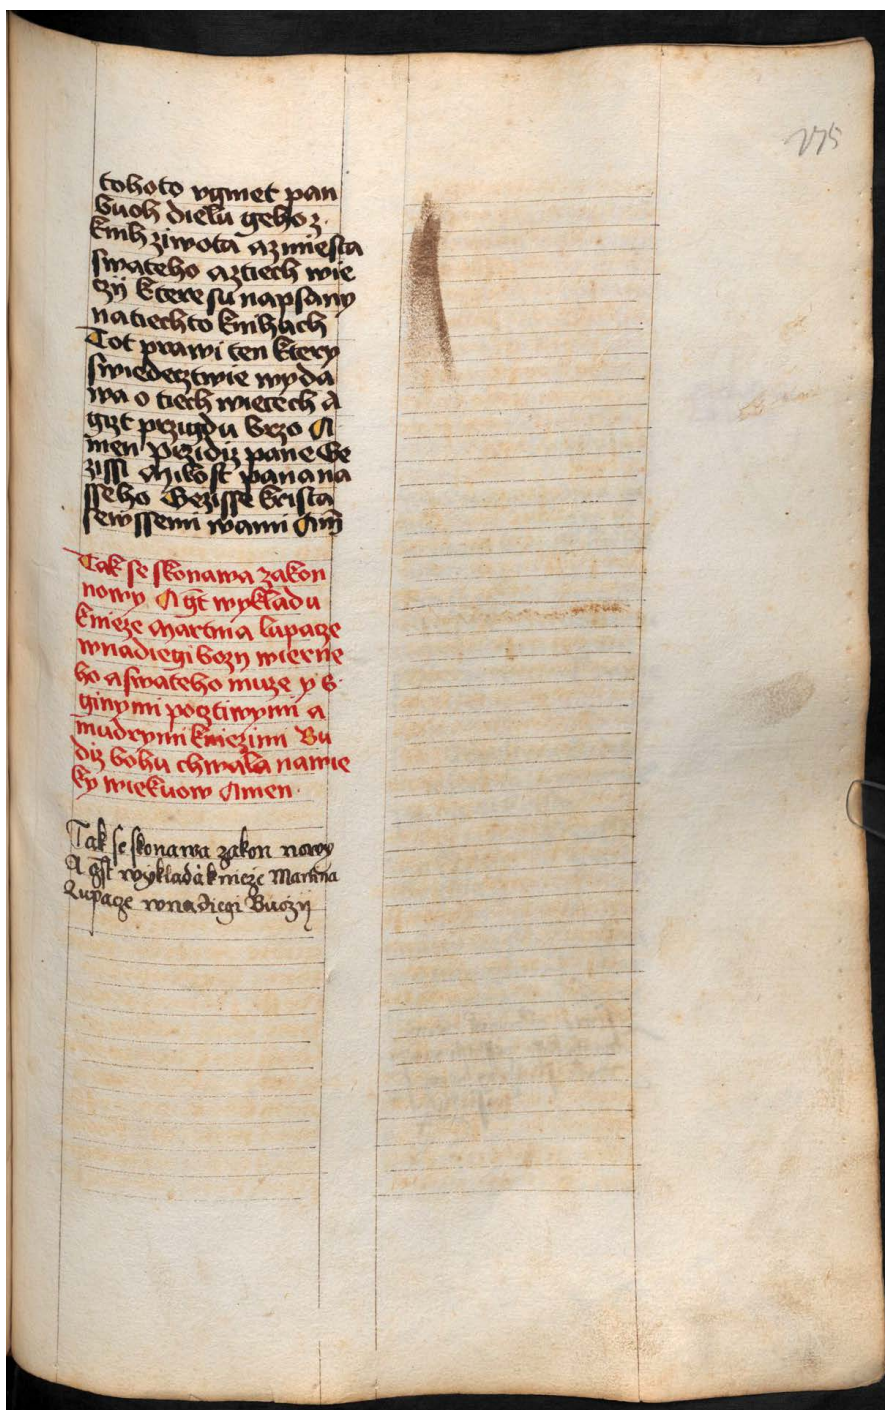 275
tohoto vgmet pan
buoh dielu geho z
knih ziwota a z miesta
swateho a z tiech wie
czij ktere su napsany
na tiechto knihach
Tot prawi ten ktery
swiedecztwie wyda
wa o tiech wiecech A
gizt przigdu brzo A
men Przidiz pane Ge
zissi Milost pana na
sseho Gezisse krista
se wssemi wami Am̄
Tak se skonawa zakon
nowy A gt wykladu
knieze Martina lupacze
w nadiegi bozy wierne
ho a swateho muze y s
ginymi pocztiwymi a
mudrymi kniezimi Bu
diz bohu chwala na wie
ky wiekuow Amen
Tak se skonawa zakon nowy
A gst wykladu knieze Martina
Lupacze w nadiegi Buozij